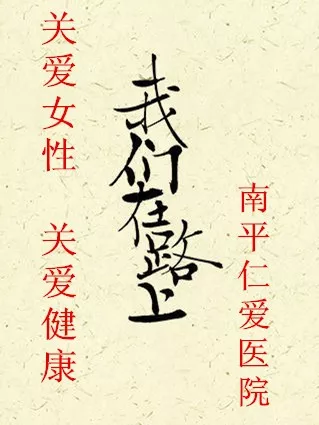 关爱女性 关爱健康
我们在路上
南平仁爱医院